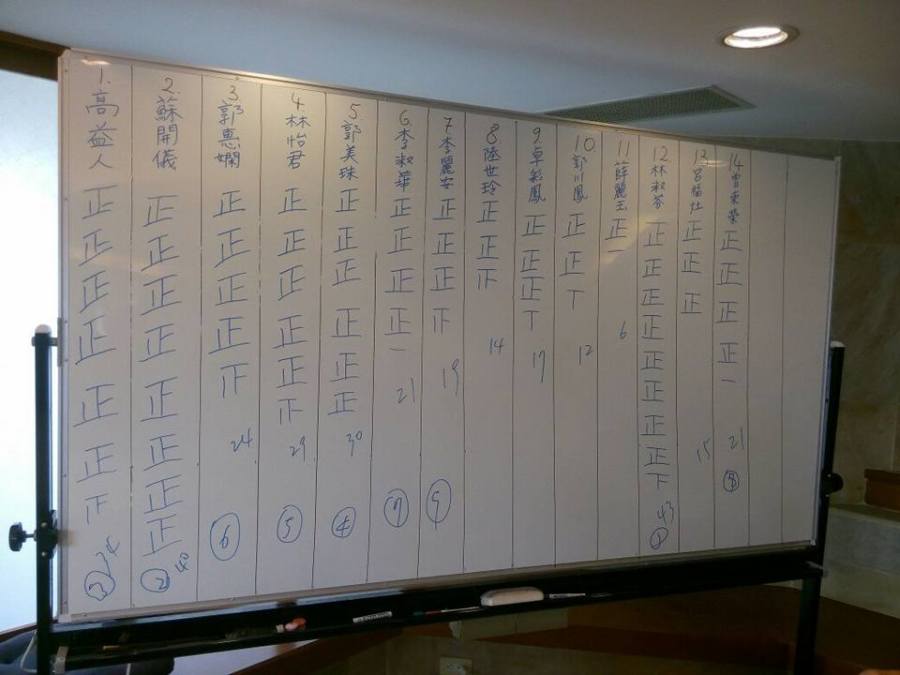 1. 高益人 正 正 正 正 正 正 止 34 ③
2. 蘇開儀 正 正 正 正 正 正 正 正 40 ②
3 郭惠嫻 正 正 正 正 止 24 ⑥
4. 林怡君 正 正 正 正 正 止 29 ⑤
5 郭美珠 正 正 正 正 正 正 30 ④
6 李淑華 正 正 正 正 一 21 ⑦
7 李麗安 正 正 正 止 19 ⑨
8 陸世玲 正 正 止 14
9 卓彩鳳 正 正 正 丅 17
10 郭川鳳 正 正 丅 12
11 薛麗玉 正 一 6
12 林淑蓉 正 正 正 正 正 正 正 正 下 43 ①
13 呂福灶 正 正 正 15
14 曾東榮 正 正 正 正 一 21 ⑧